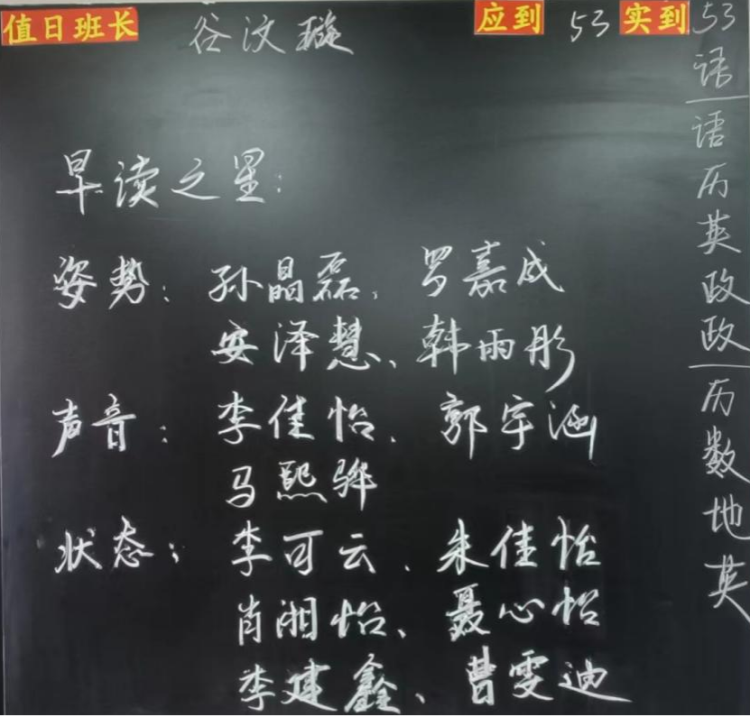 值日班长 谷汶璇 应到 53 实到 53
早读之星:
姿势: 孙晶磊、罗嘉成
安泽慧、韩雨彤
声音: 李佳怡、郭宇涵
马熙骅
状态: 李可云、朱佳怡
肖湘怡、聂心怡
李建鑫、曹雯迪
语
语
历
英
政
政
历
数
地
英